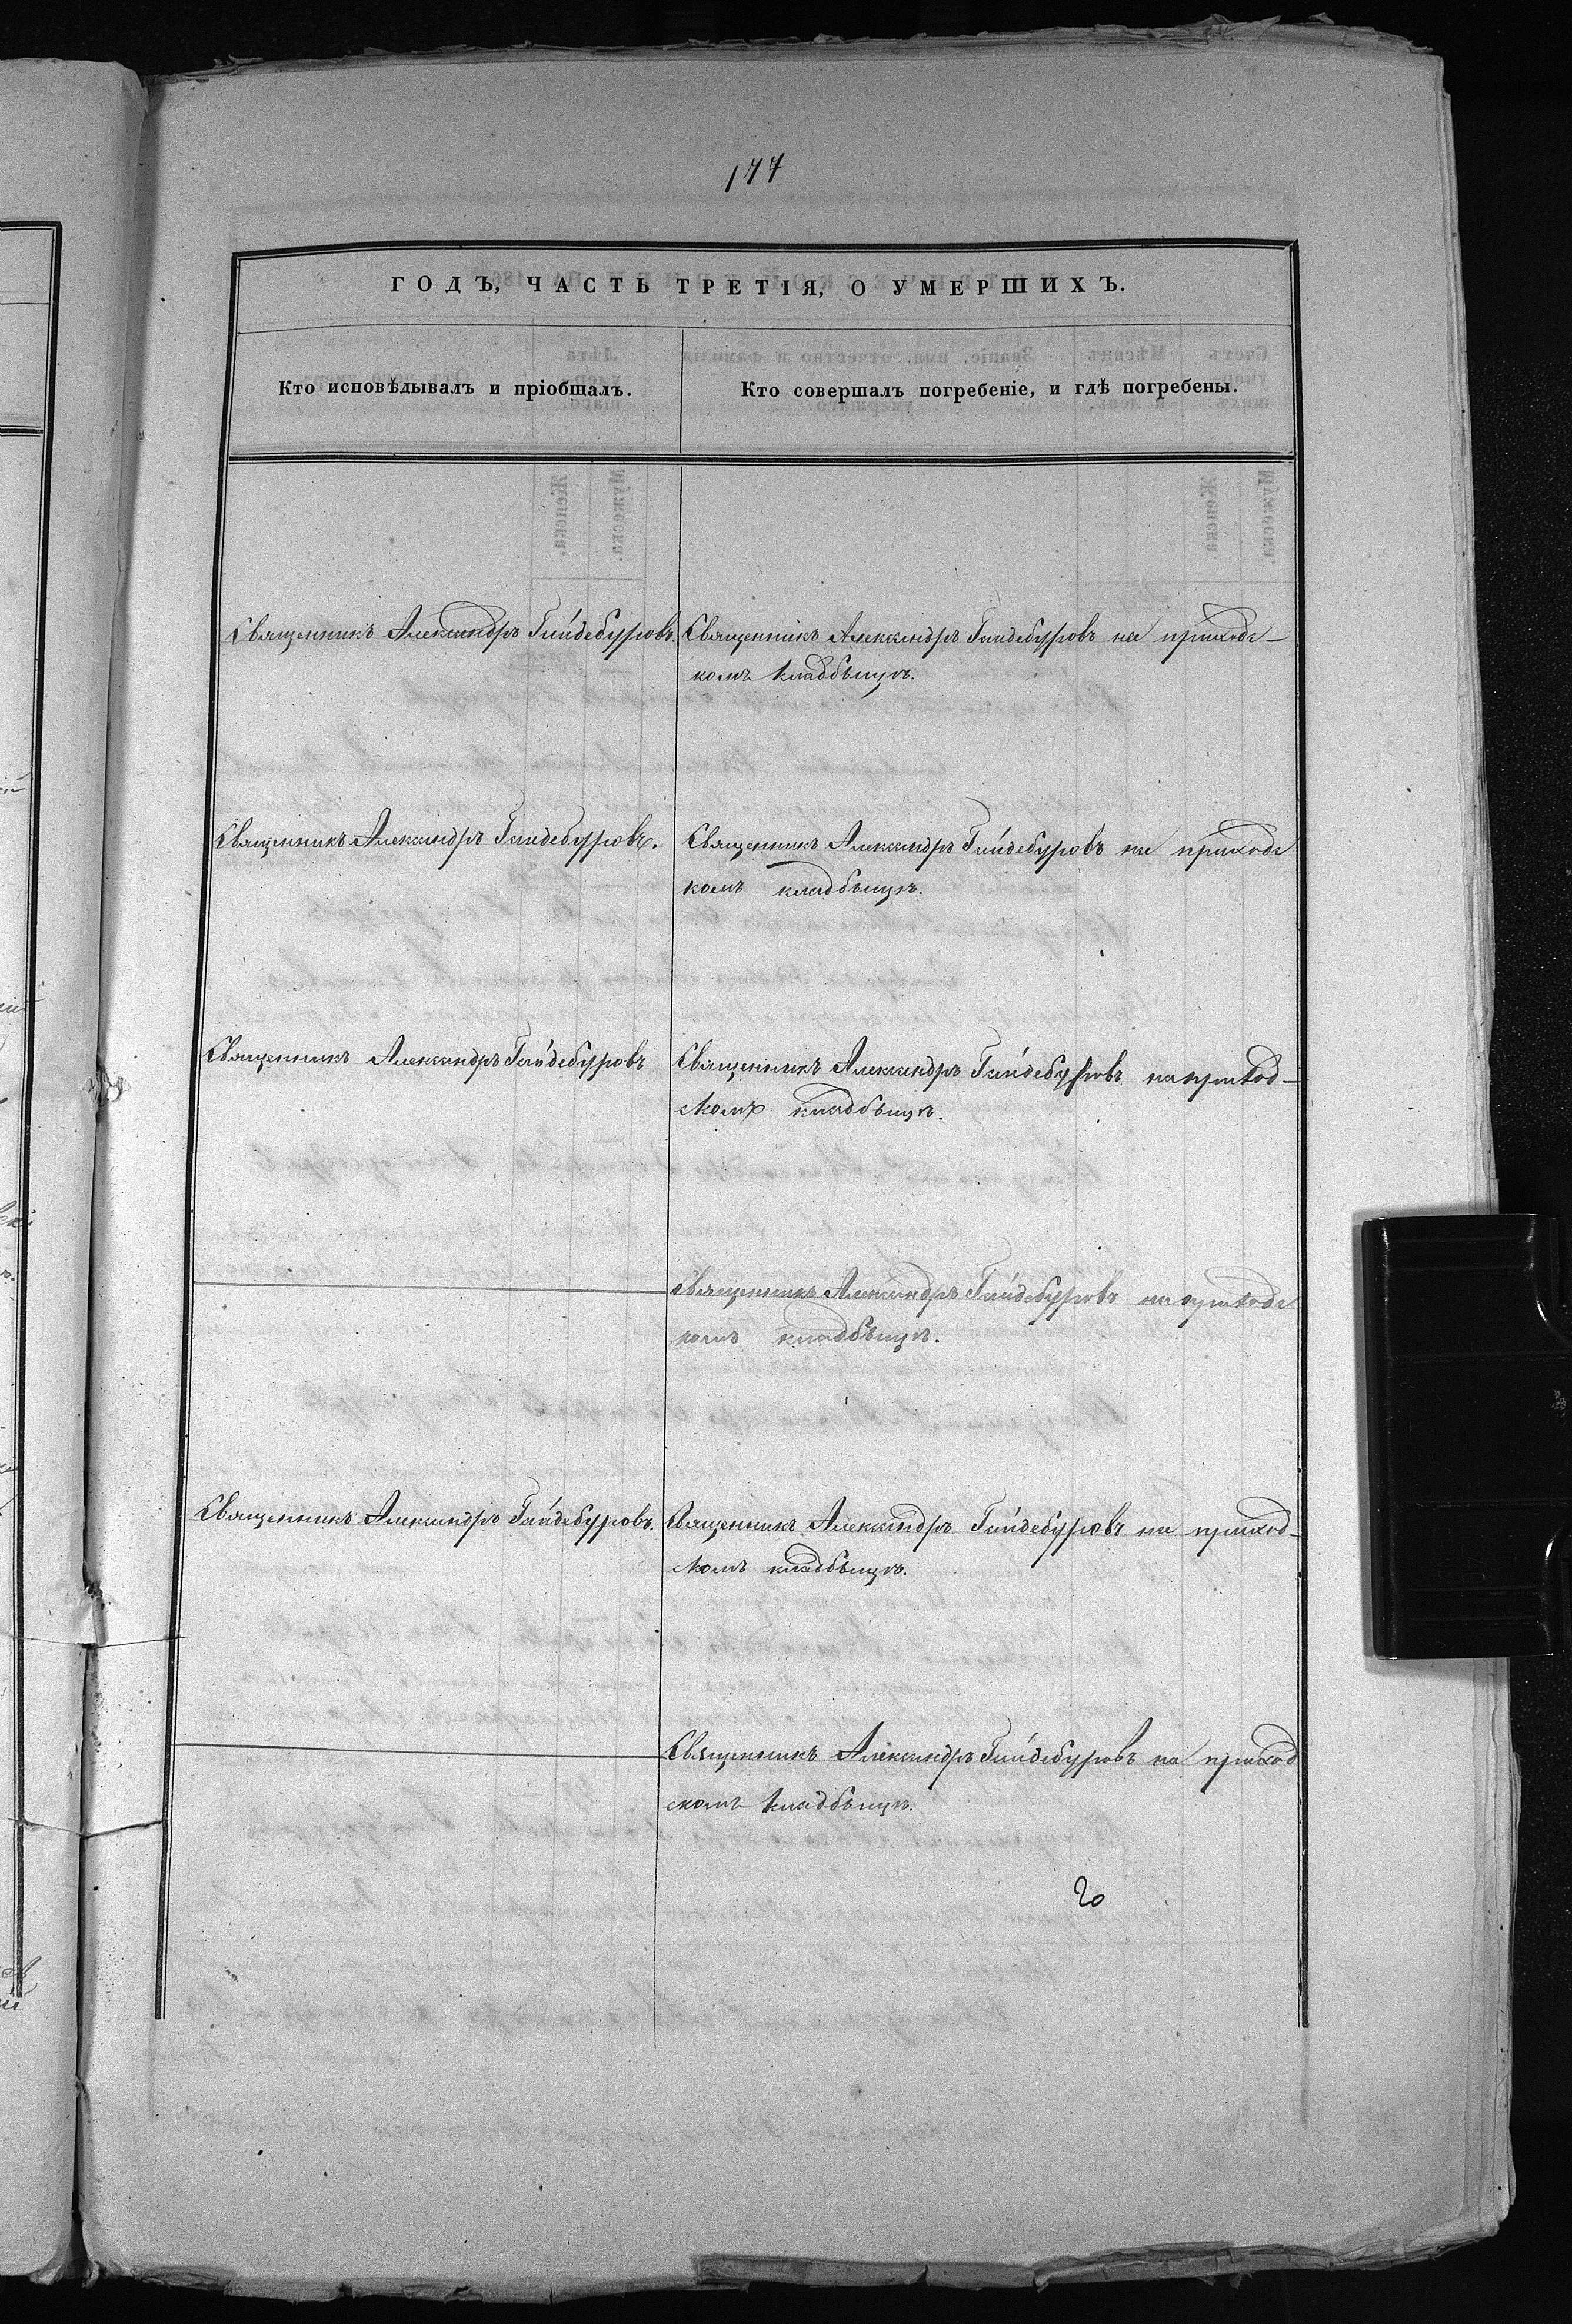 177
ГОДЪ, ЧАСТЬ ТРЕТІЯ, О УМЕРШИХЪ.
Кто исповѣдывалъ и пріобщалъ.
Кто совершалъ погребеніе, и гдѣ погребены.
Священникъ Александръ Гайдебуровъ.
Священникъ Александръ Гайдебуровъ на приходс-
комъ кладбѣищѣ.
Священникъ Александръ Гайдебуровъ.
Священникъ Александръ Гайдебуровъ на приходс
комъ кладбѣищѣ.
Священникъ Александръ Гайдебуровъ
Священникъ Александръ Гайдебуровъ на приход-
скомъ кладбѣищѣ.
Священникъ Александръ Гайдебуровъ на приходс
комъ кладбѣищѣ.
Священникъ Александръ Гайдебуровъ.
Священникъ Александръ Гайдебуровъ на приход-
скомъ кладбѣищѣ.
Священникъ Александръ Гайдебуровъ на приход
скомъ кладбѣищѣ.
20